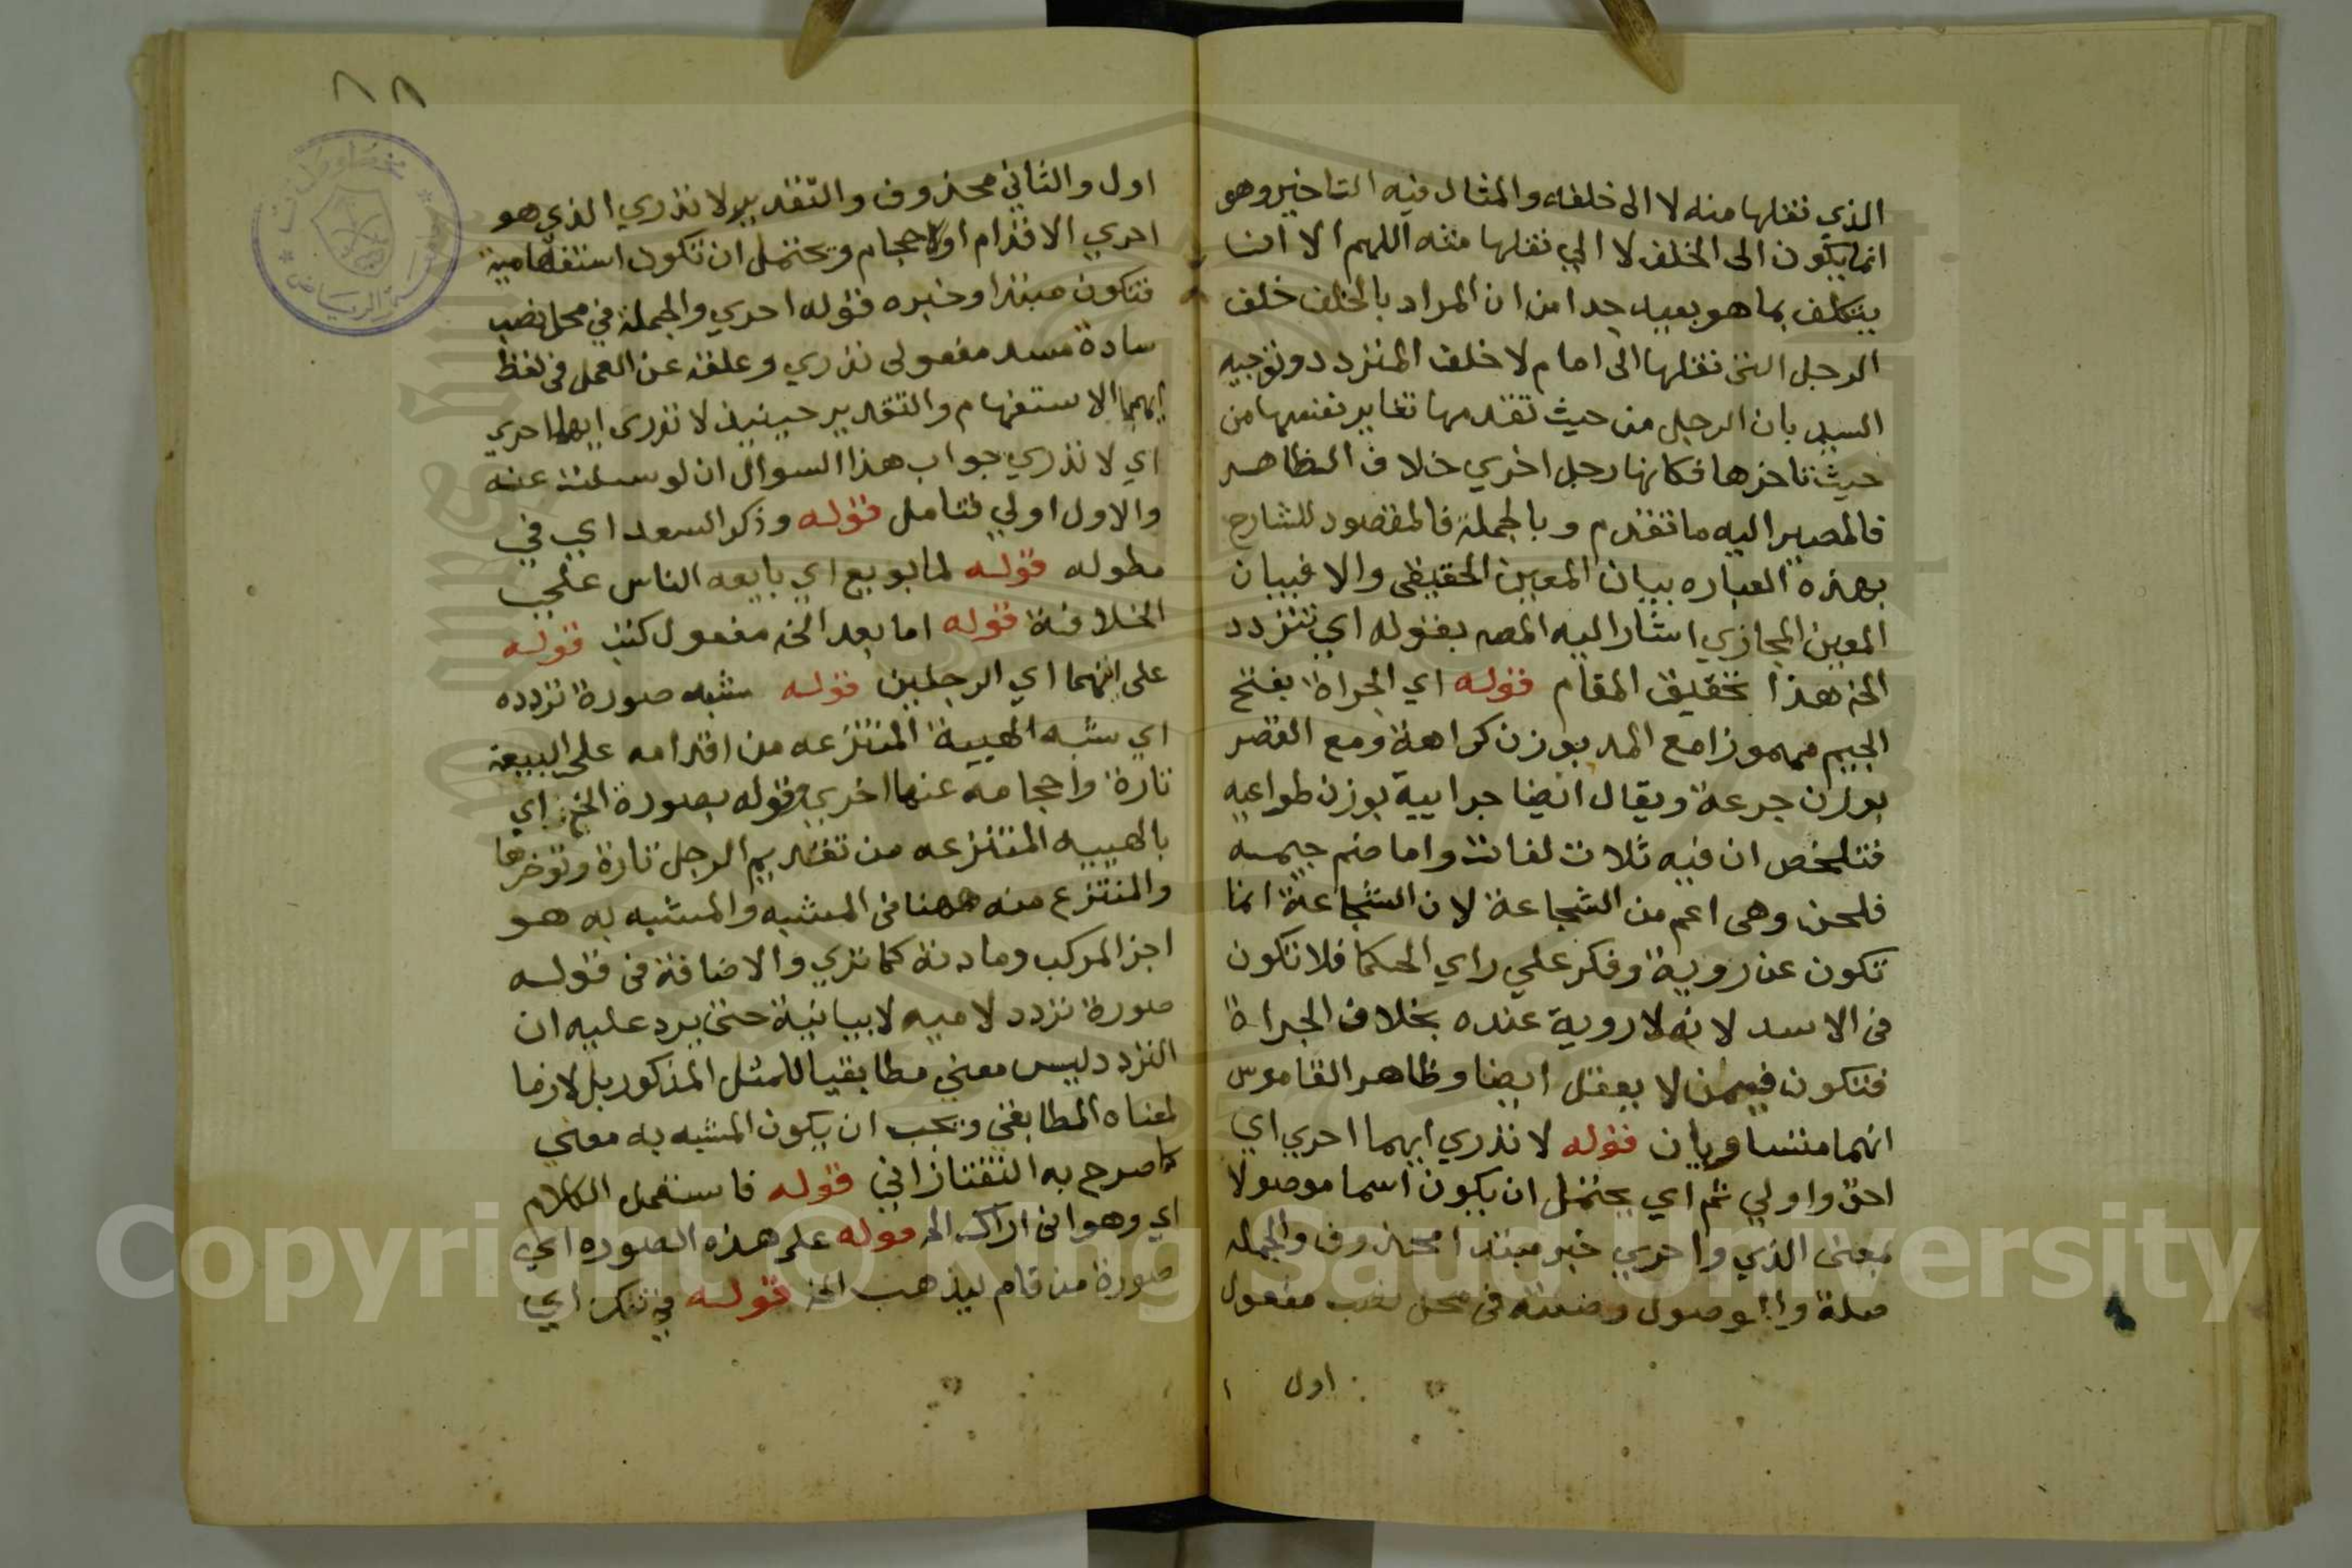 الذي نقلها منه لا الى خلفه والمثال فيه التاخير وهو
انما يكون الى الخلف لا الي نقلها منه اللهم الا ان
يتكلف بما هو بعيد جدا من ان المراد بالخلف خلف
الرجل التي نقلها الى امام لا خلف المتردد وتوجيه
السيد بان الرجل من حيث تقدمها تغاير نفسها من
حيث تاخرها فكانها رجل اخري خلاف الظاهر
فالمصير اليه ما تقدم وبالجملة فالمقصود للشارح
بهذه العباره بيان المعين الحقيقى والا فبيان
المعين المجازي اشار اليه المصـ بقوله اي تتردد
الخ هذا تحقيق المقام قوله اي الجراة بفتح
الجيم مهموزا مع المد بوزن كراهة ومع القصر
بوزن جرعة ويقال ايضا جراييه بوزن طواعيه
فتلخص ان فيه ثلاث لغات واما ضم جيمه
فلحن وهى اعم من الشجاعة لان الشجاعة انما
تكون عن روية وفكر علي راي الحكما فلا تكون
فى الاسد لانه لا روية عنده بخلاف الجراة
فتكون فيمن لا يعقل ايضا وظاهر القاموس
انهما متساويان قوله لا تدري ايهما احري اي
احق واولي ثم اي يحتمل ان يكون اسما موصولا
بمعنى الذي واحري خبر مبتدا محذوف والجمله
صلة والموصول وصلته فى محل نصب مفعول
اول
٨٨
اول والثاني محذوف والتقدير لا تدري الذي هو
احري الاقدام او الاحجام ويحتمل ان تكون استفهامية
فتكون مبتدا وخبره قوله احري والجملة في محل نصب
سادة مسد مفعولى تدري وعلقه عن العمل فى لفظ
ايهما الاستفهام والتقدير حينيذ لا تدرى ايهما احري
اي لا تدري جواب هذا السوال ان لو سئلت عنه
والاول اولي فتامل قوله وذكر السعد اي في
مطوله قوله لما بويع اي بايعه الناس على
الخلافة قوله اما بعد الخ مفعول كتب قوله
على ايهما اي الرجلين قوله شبه صورة تردده
اي شبه الهيية المنتزعه من اقدامه على البيعة
تارة واحجامه عنها اخري وقوله بصورة الخ اي
بالهييه المنتزعه من تقديم الرجل تارة وتوخرها
والمنتزع منه ههنا فى المشبه والمشبه به هو
اجزا المركب ومادته كما تري والاضافة فى قوله
صورة تردد لاميه لا بيانية حتى يرد عليه ان
التردد ليس معني مطابقيا للمثل المذكور بل لازما
لمعناه المطابقي ويجب ان يكون المشبه به معني
كما صرح به التفتازاني قوله فاستعمل الكلام
اي وهو اني اراك الخ قوله على هذه الصوره اي
صورة من قام ليذهب الخ قوله في تلك اي
Copyright © King Saud University